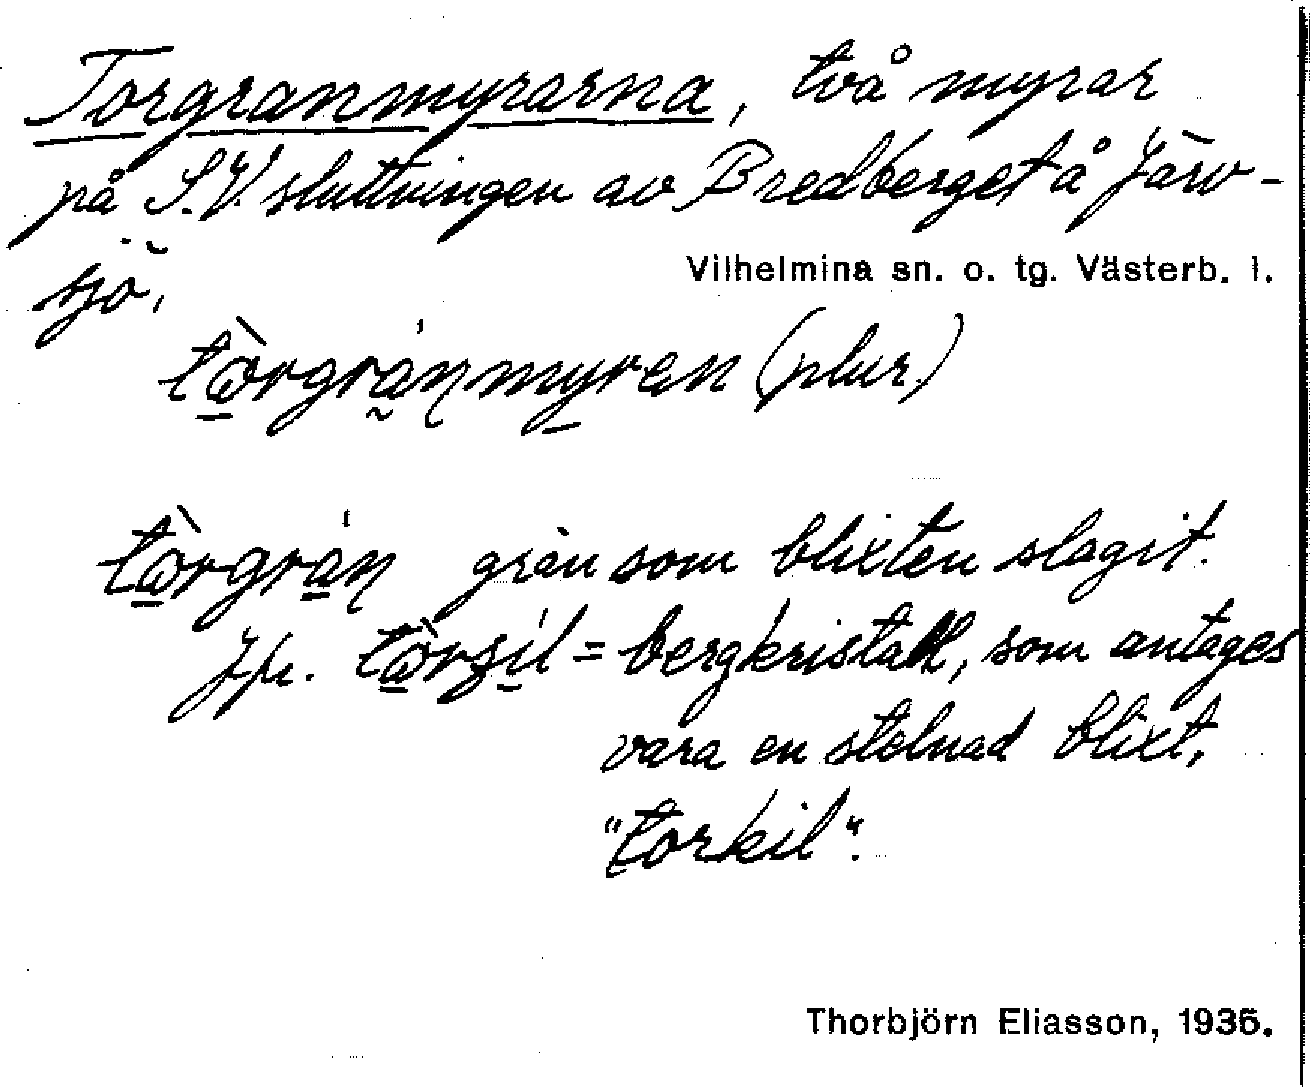 Torgranmyrarna, två myrar
på S.V. sluttningen av Bredberget å Järv-
sjö.
Vilhelmina sn. o. tg. Västerb. l.
tòrgránmyren (plur.)
tòrgrán gran som blixten slagit.
Jfr. tòrsíl = bergkristall, som antages
vara en stelnad blixt,
"torkil".
Thorbjörn Eliasson, 1935.